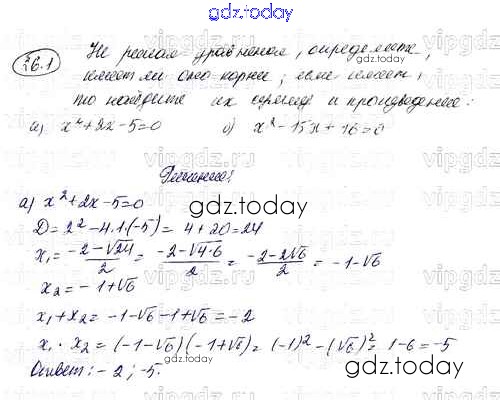 gdz.today
26.1 Не решая уравнения, определите,
имеет ли оно корни; если имеет,
то найдите их сумму и произведение:
а) x² + 2x - 5 = 0 б) x² - 15x + 16 = 0
gdz.today
Решение:
а) x² + 2x - 5 = 0
gdz.today
D = 2² - 4·1·(-5) = 4 + 20 = 24
x₁ = (-2 - √24)/2 = (-2 - √4·6)/2 = (-2 - 2√6)/2 = -1 - √6
x₂ = -1 + √6
x₁ + x₂ = -1 - √6 - 1 + √6 = -2
x₁ · x₂ = (-1 - √6)(-1 + √6) = (-1)² - (√6)² = 1 - 6 = -5
Ответ: -2; -5.
gdz.today